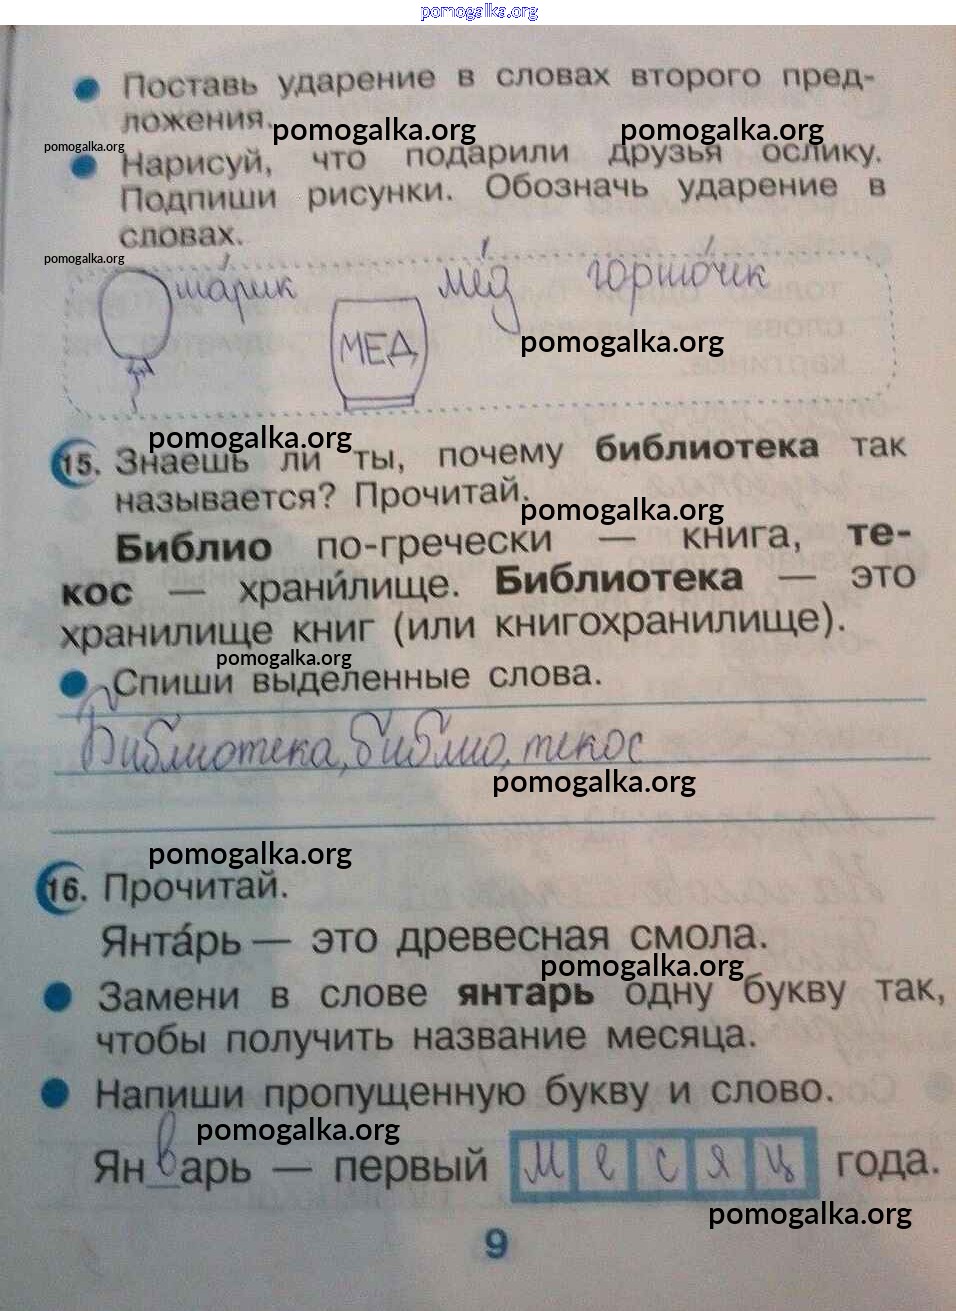 pomogalka.org
Поставь ударение в словах второго пред-
ложения.
pomogalka.org pomogalka.org
pomogalka.org
Нарисуй, что подарили друзья ослику.
Подпиши рисунки. Обозначь ударение в
словах.
pomogalka.org
ша́рик мёд горшо́чик
МЕД
pomogalka.org
pomogalka.org
15. Знаешь ли ты, почему библиотека так
называется? Прочитай.
pomogalka.org
Библио по-гречески — книга, те-
кос — храни́лище. Библиотека — это
хранилище книг (или книгохранилище).
pomogalka.org
Спиши выделенные слова.
Библиотека, библио, текос
pomogalka.org
pomogalka.org
16. Прочитай.
Янта́рь — это древесная смола.
pomogalka.org
Замени в слове янтарь одну букву так,
чтобы получить название месяца.
Напиши пропущенную букву и слово.
pomogalka.org
Январь — первый месяц года.
pomogalka.org
9